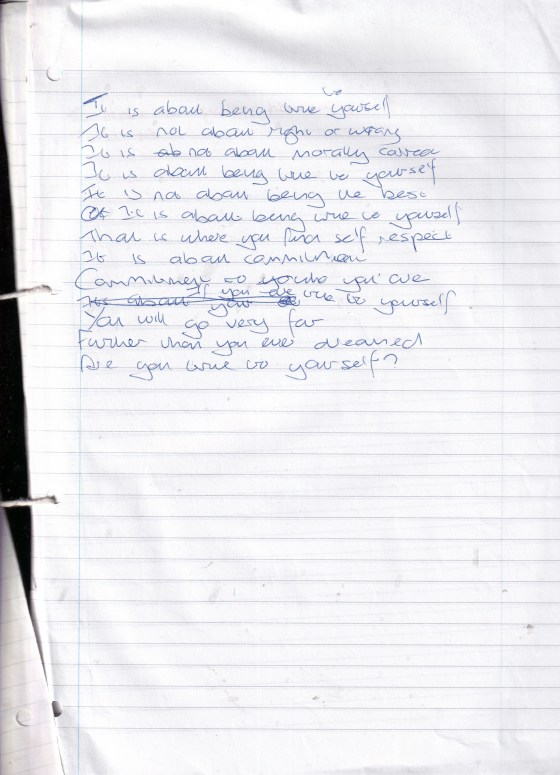 It is about being true to yourself
It is not about right or wrong
It is ab not about morally correct
It is about being true to yourself
It is not about being the best
Of It is about being true to yourself
That is where you find self respect
It is about commitment
Commitment to you're
Its about your If you are true to yourself
You will go very far
Further than you ever dreamed
Are you true to yourself?